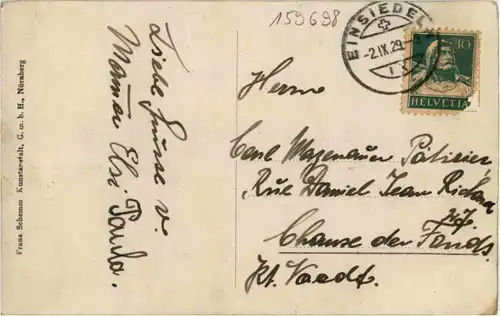 159698
EINSIEDEL
-2.IX.29.
10
HELVETIA
Franz Schemm Kunstanstalt, G. m. b. H., Nürnberg
Liebe Grüsse v.
Mama Elsi Paula.
Herrn
Carl Mazenauer Pâtisier
Rue Daniel Jean Richard
Chause de Fonds
Kt. Vaadt.